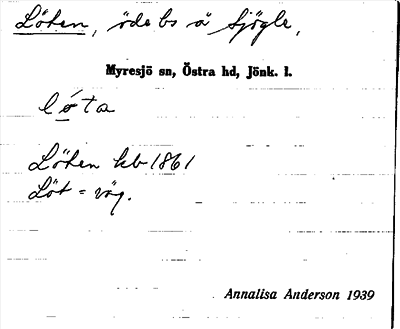 Löten, öde bs å Sjögle,
Myresjö sn, Östra hd, Jönk. l.
lǿta
Löten kb 1861
Löt = väg.
Annalisa Anderson 1939